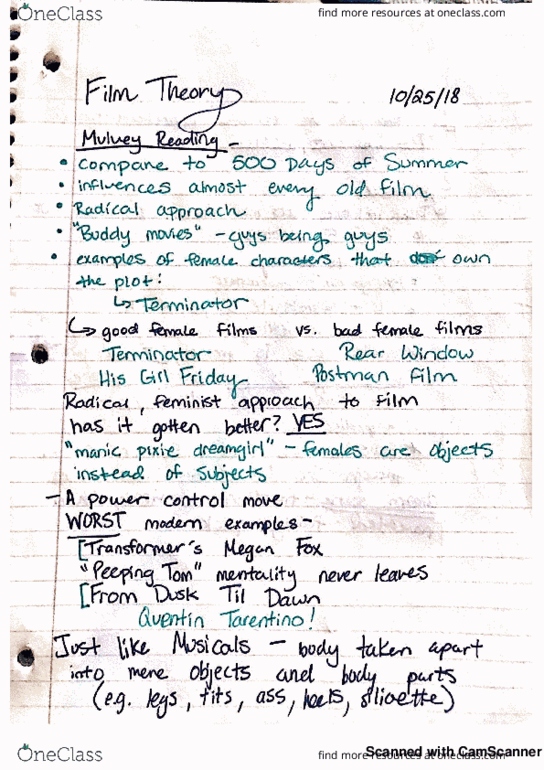 OneClass
find more resources at oneclass.com
Film Theory 10/25/18
Mulvey Reading -
• compare to 500 Days of Summer
• influences almost every old film
• Radical approach
• "Buddy movies" - guys being guys
• examples of female characters that own
the plot:
↳ Terminator
↳ good female films vs. bad female films
Terminator Rear Window
His Girl Friday Postman Film
Radical, feminist approach to film
has it gotten better? YES
"manic pixie dreamgirl" - females are objects
instead of Subjects
- A power control move
WORST modern examples -
[Transformer's Megan Fox
"Peeping Tom" mentality never leaves
[From Dusk Til Dawn
Quentin Tarentino!
Just like Musicals - body taken apart
into mere objects and body parts
(e.g. legs, tits, ass, heels, sliouette)
OneClass
find more resources at oneclass.com
Scanned with CamScanner